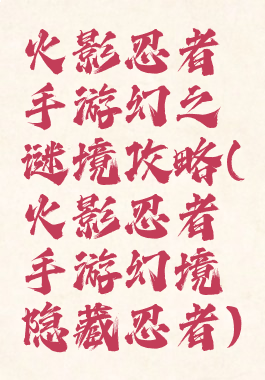 火影忍者
手游幻之
谜境攻略(
火影忍者
手游幻境
隐藏忍者)